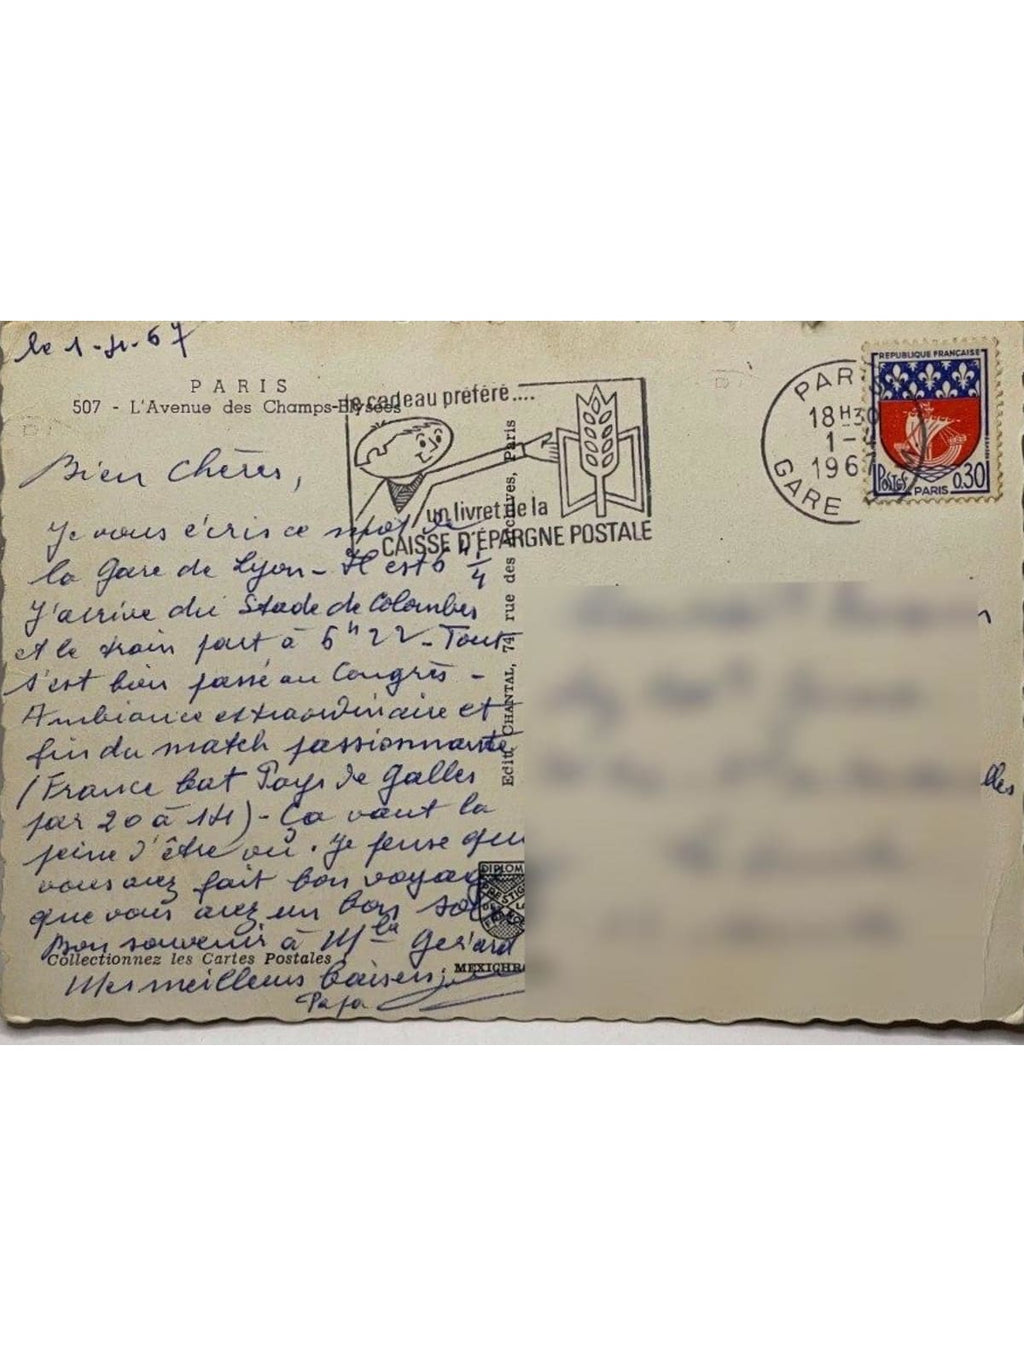 le 1-4-67
PARIS
507 - L'Avenue des Champs-Elysées
le cadeau préféré....
un livret de la
CAISSE D'ÉPARGNE POSTALE
PARIS
18H30
1-4
196
GARE
REPUBLIQUE FRANÇAISE
POSTES
PARIS
0,30
Bien Chères,
Je vous écris ce mot de
la Gare de Lyon - Il est 6 h 1/4
J'arrive du Stade de Colombes
et le train part à 6h22 - Tout
s'est bien passé au Congrès -
Ambiance extraordinaire et
fin du match passionnante
(France bat Pays de Galles
par 20 à 14) - Ça vaut la
peine d'être vu. Je pense que
vous avez fait bon voyage
que vous avez un bon
Bon souvenir à Gérard
Meilleurs baisers
Papa
Collectionnez les Cartes Postales
Edit. CHANTAL, 74, rue des Archives, Paris
DIPLOM
PRESTIGE
MEXICHR
lles